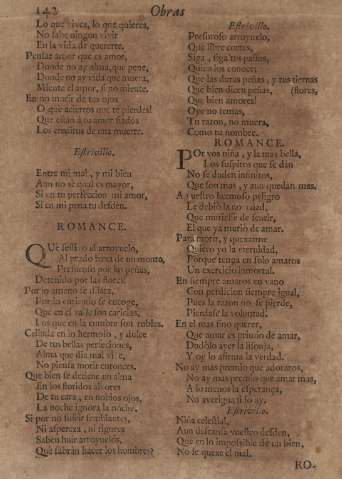 142 Obras
Lo que vives, lo que quieres,
No sabe ningun vivir
En la vida de quererte.
Pensar amor que es amar,
Donde no ay alma, que pene,
Donde no ay vida que muera,
Miente el amor, si no miente.
En no morir de tus ojos
O què aciertos que te pierdes!
Que están à tu amor fiados
Los creditos de una muerte.
Estrivillo.
Entre mi mal, y mi bien
Aun no sè qual es mayor,
Si en tu perfeccion mi amor,
Si en mi pena tu desden.
ROMANCE.
QUe sella el arroyuelo,
Al prado hijo de un monte,
Presuroso por las peñas,
Detenido por las flores.
Por lo ameno se dilata,
Por lo estrecho se encoge,
Que en el son caricias,
Los que en la cumbre son robles.
Callando en lo hermoso, y dulce
De tus bellas perfeciones,
Alma que dia vive,
No piensa morir entonces.
Que bien se detiene un alma
En los floridos alvores
De tu cara, en
La noche ignora la noche.
Si por no sufrir semblantes,
Ni aspereza, ni rigores
Saben huir arroyuelos,
Que sabràn hazer los hombres?
Estrivillo.
Presuroso arroyuelo,
Que libre corres,
Siga, siga tus passos,
Quien los conoce;
Que las duras peñas, y tus tiernas
Que bien dizen peñas, (flores,
Que bien amores!
Oye no temas,
Tu razon, no muera,
Como tu nombre.
ROMANCE.
POr vos niña, y la mas bella,
Los suspiros que se dàn
No se duden infinitos,
Que son mas, y aun quedan mas.
A vuestro hermoso peligro
Le debiò la
Que muriesse de sentir,
El que ya murio de amar.
Para morir, y quexarme
Quiero yo la eternidad,
Porque tenga en solo amaros
Un exercicio inmortal.
En siempre amaros en vano
Con perfeccion siempre igual,
Pues la razon no se pierde,
Pierdase la voluntad.
En el mas fino querer,
Que amar es primio de amar,
Dudolo ayer la lisonja,
Y oy lo afirma la verdad.
No ay mas premio que adoraros,
No ay mas premio que amar mas,
A lo menos la esperança,
No averigua si lo ay.
Estrivillo.
Niña celestial,
Aun descansa vuestro desden,
Que en lo impossible de un bien,
No se quexe el mal.
RO-